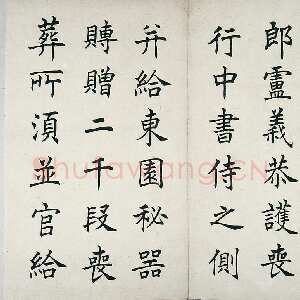 郎盧義恭護喪
行中書侍之側
并給東園秘器
賻贈二千段喪
葬所須並官給
Shufawang.CN